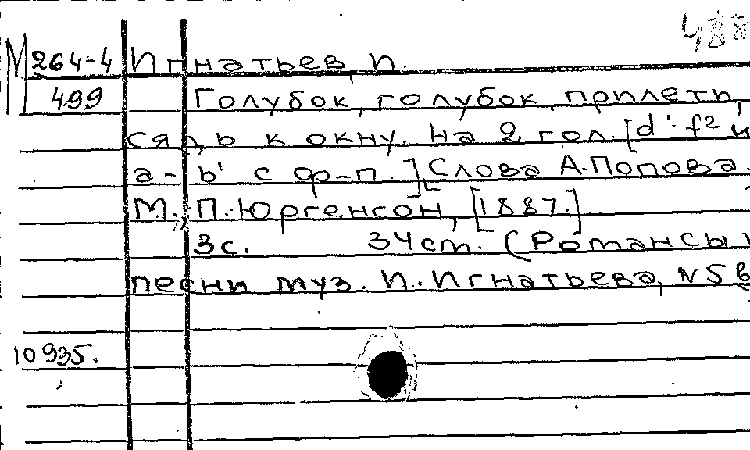 488
М 264-4 Игнатьев, И.
499 Голубок, голубок, прилети,
сядь к окну. На 2 гол. [d'-f² и
a-b' с ф-п.] [Слова А. Попова.
М., П. Юргенсон, [1887.]
3с. 34 ст. (Романсы и
песни муз. И. Игнатьева, N5 в
10935.